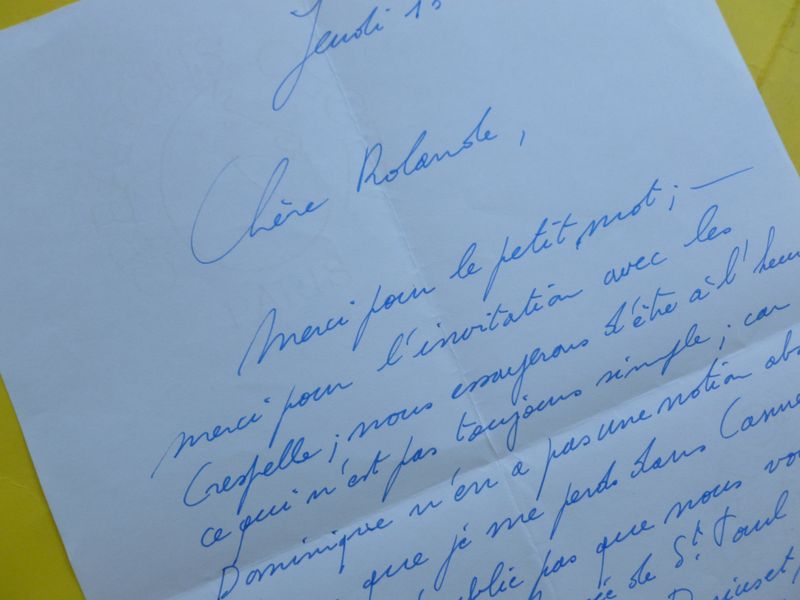 Jeudi 15
Chère Rolande,
Merci pour le petit mot; —
merci pour l'invitation avec les
Crespelle; nous essayerons d'être à l'heure
ce qui n'est pas toujours simple; car
Dominique n'en a pas une notion abs
que je me perds dans Cannes
pas que nous vou
de St. Paul